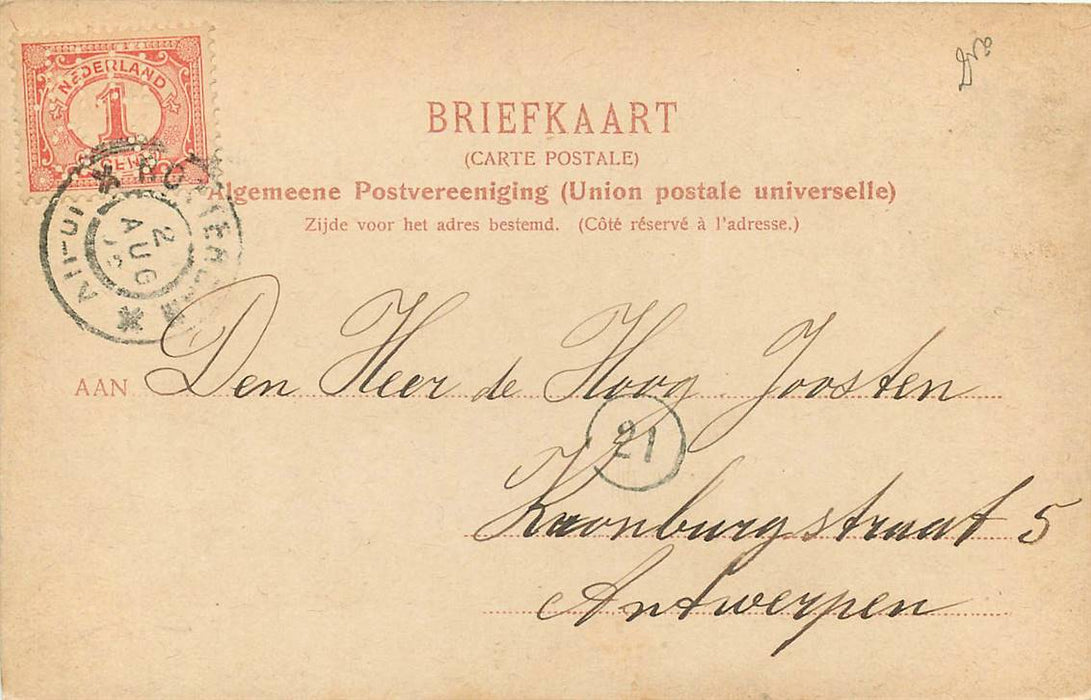 NEDERLAND
1
CENT
2
AUG
BRIEFKAART
(CARTE POSTALE)
Algemeene Postvereeniging (Union postale universelle)
Zijde voor het adres bestemd. (Côté réservé à l'adresse.)
AAN Den Heer de Hoog Joosten
21
Kronburgstraat 5
Antwerpen